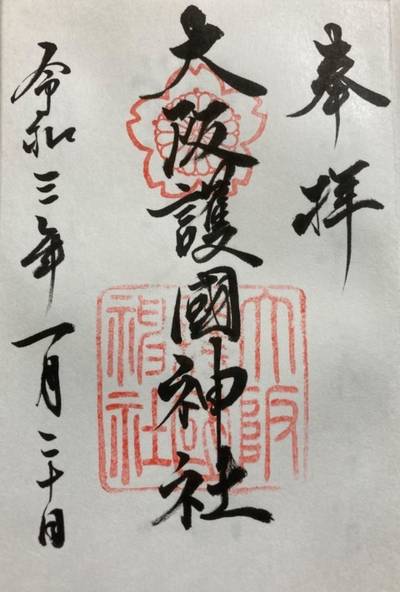 奉拝
大阪護國神社
令和三年一月二十日
大阪護國神社